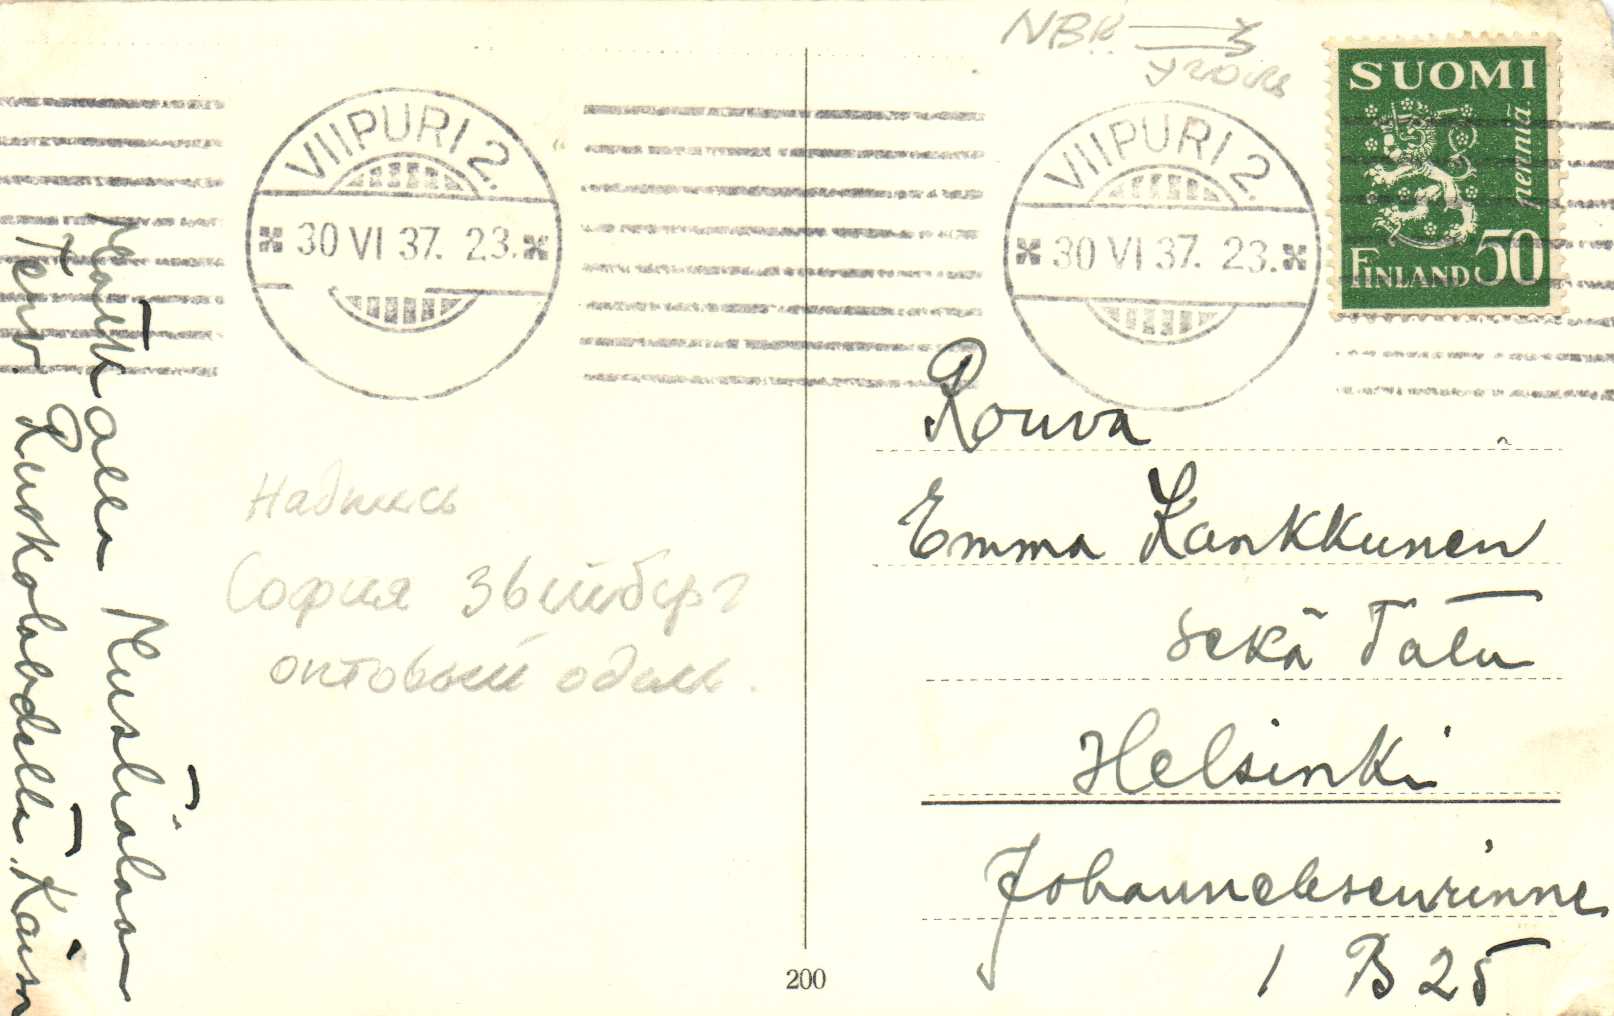 NBR
уголь
SUOMI
penniä
FINLAND 50
VIIPURI 2.
30 VI 37. 23.
VIIPURI 2.
30 VI 37. 23.
Matkalla Mustialaan
Terv. Ruskolahdella. Kaisu
Надпись
София Звейберг
оптовый
Rouva
Emma Kankkunen
sekä Tatu
Helsinki
Johanneksenrinne
1 B 25
200